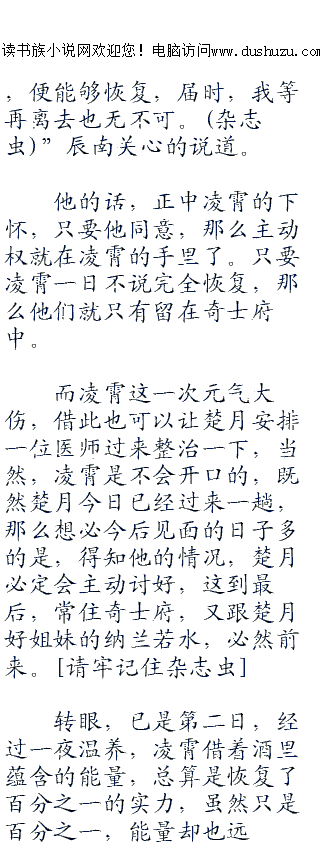 读书族小说网欢迎您！电脑访问www.dushuzu.com
，便能够恢复，届时，我等
再离去也无不可。(杂志
虫)”辰南关心的说道。
他的话，正中凌霄的下
怀，只要他同意，那么主动
权就在凌霄的手里了。只要
凌霄一日不说完全恢复，那
么他们就只有留在奇士府
中。
而凌霄这一次元气大
伤，借此也可以让楚月安排
一位医师过来整治一下，当
然，凌霄是不会开口的，既
然楚月今日已经过来一趟，
那么想必今后见面的日子多
的是，得知他的情况，楚月
必定会主动讨好，这到最
后，常住奇士府，又跟楚月
好姐妹的纳兰若水，必然前
来。[请牢记住杂志虫]
转眼，已是第二日，经
过一夜温养，凌霄借着酒里
蕴含的能量，总算是恢复了
百分之一的实力，虽然只是
百分之一，能量却也远